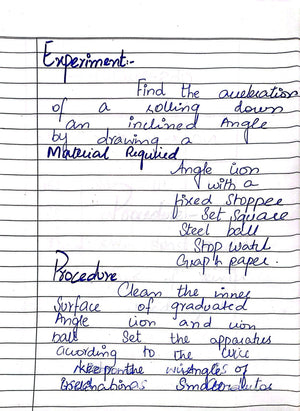 Experiment:-
Find the acceleration
of a rolling down
an inclined Angle
by drawing a
Material Required
Angle iron
with a
fixed Stopper
Set Square
Steel ball
Stop watch
Graph paper.
Procedure
Clean the inner
Surface of graduated
Angle iron and iron
ball Set the apparatus
according to the
the of